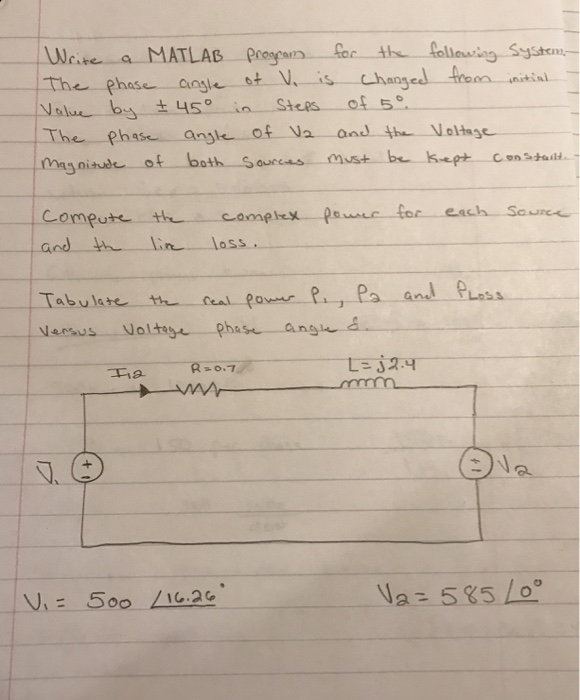 Write a MATLAB program for the following System.
The phase angle of V₁ is changed from initial
Value by ± 45° in Steps of 5°.
The phase angle of V2 and the Voltage
Magnitude of both Sources must be kept constant.
Compute the complex power for each source
and th line loss.
Tabulate the real power P₁, P2 and PLoss
Versus Voltage phase angle δ.
I12 R=0.7 L=j2.4
V₁ + - + - V2
V₁ = 500 ∠16.26° V2 = 585 ∠0°